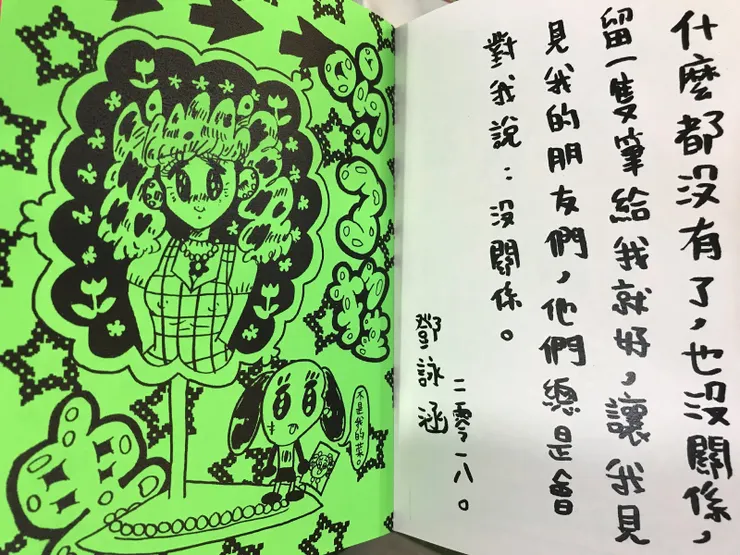 什麼都沒有了，也沒關係，
留一隻筆給我就好，讓我見
見我的朋友們，他們總是會
對我說：沒關係。
鄧詠涵
二零一八。
不是我的菜。